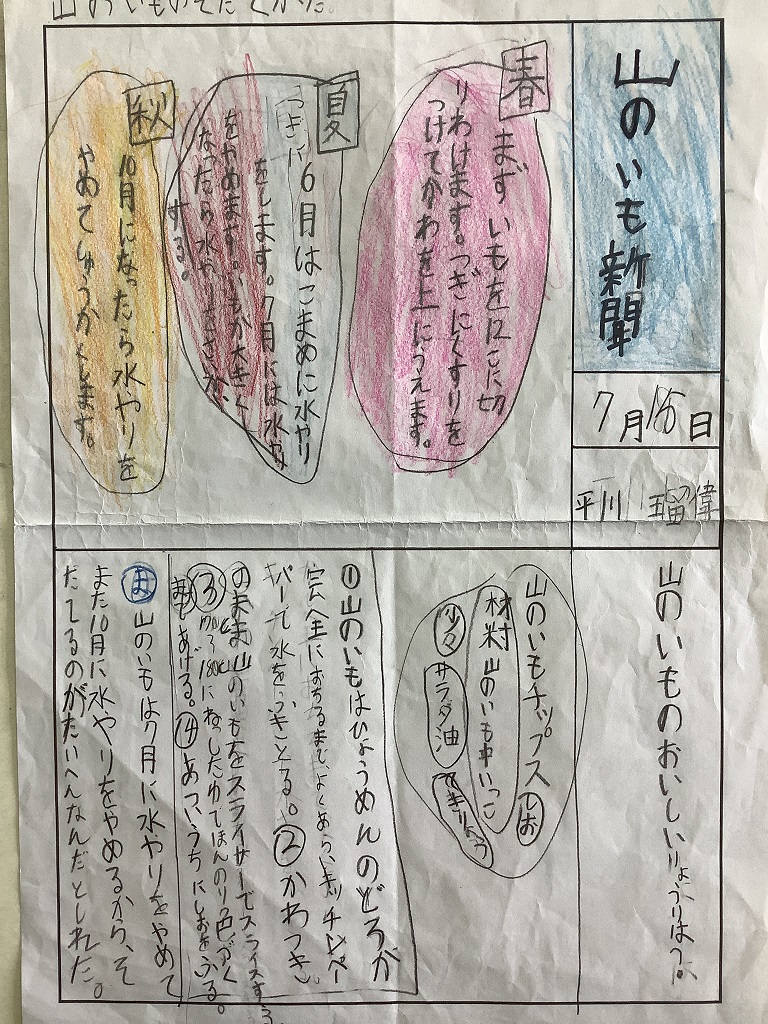 山のいものそだてかた。
山のいも新聞
7月15日
平川瑠偉
春
まずいもをたてに切
りわけます。つぎにくすりを
つけてかわを上にうえます。
夏
つぎに6月はこまめに水やり
をします。7月には水やり
をやめます。いもが大きく
なったら水やりをさい
する。
秋
10月になったら水やりを
やめてしゅうかくします。
山のいものおいしいりょうりは?。
山のいもチップス
材料 山のいも中いっこ
しお 少々 サラダ油 てきりょう
①山のいもはひょうめんのどろが
完全におちるまで、よくあらいキッチンペー
パーで水をふきとる。②かわつき
のまま山のいもをスライサーでスライスする。
③170~180℃にねっしたゆでほんのり色づく
まであげる。④あついうちにしおをふる。
ま 山のいもは7月に水やりをやめて
また10月に水やりをやめるから、そ
だてるのがたいへんなんだとしれた。